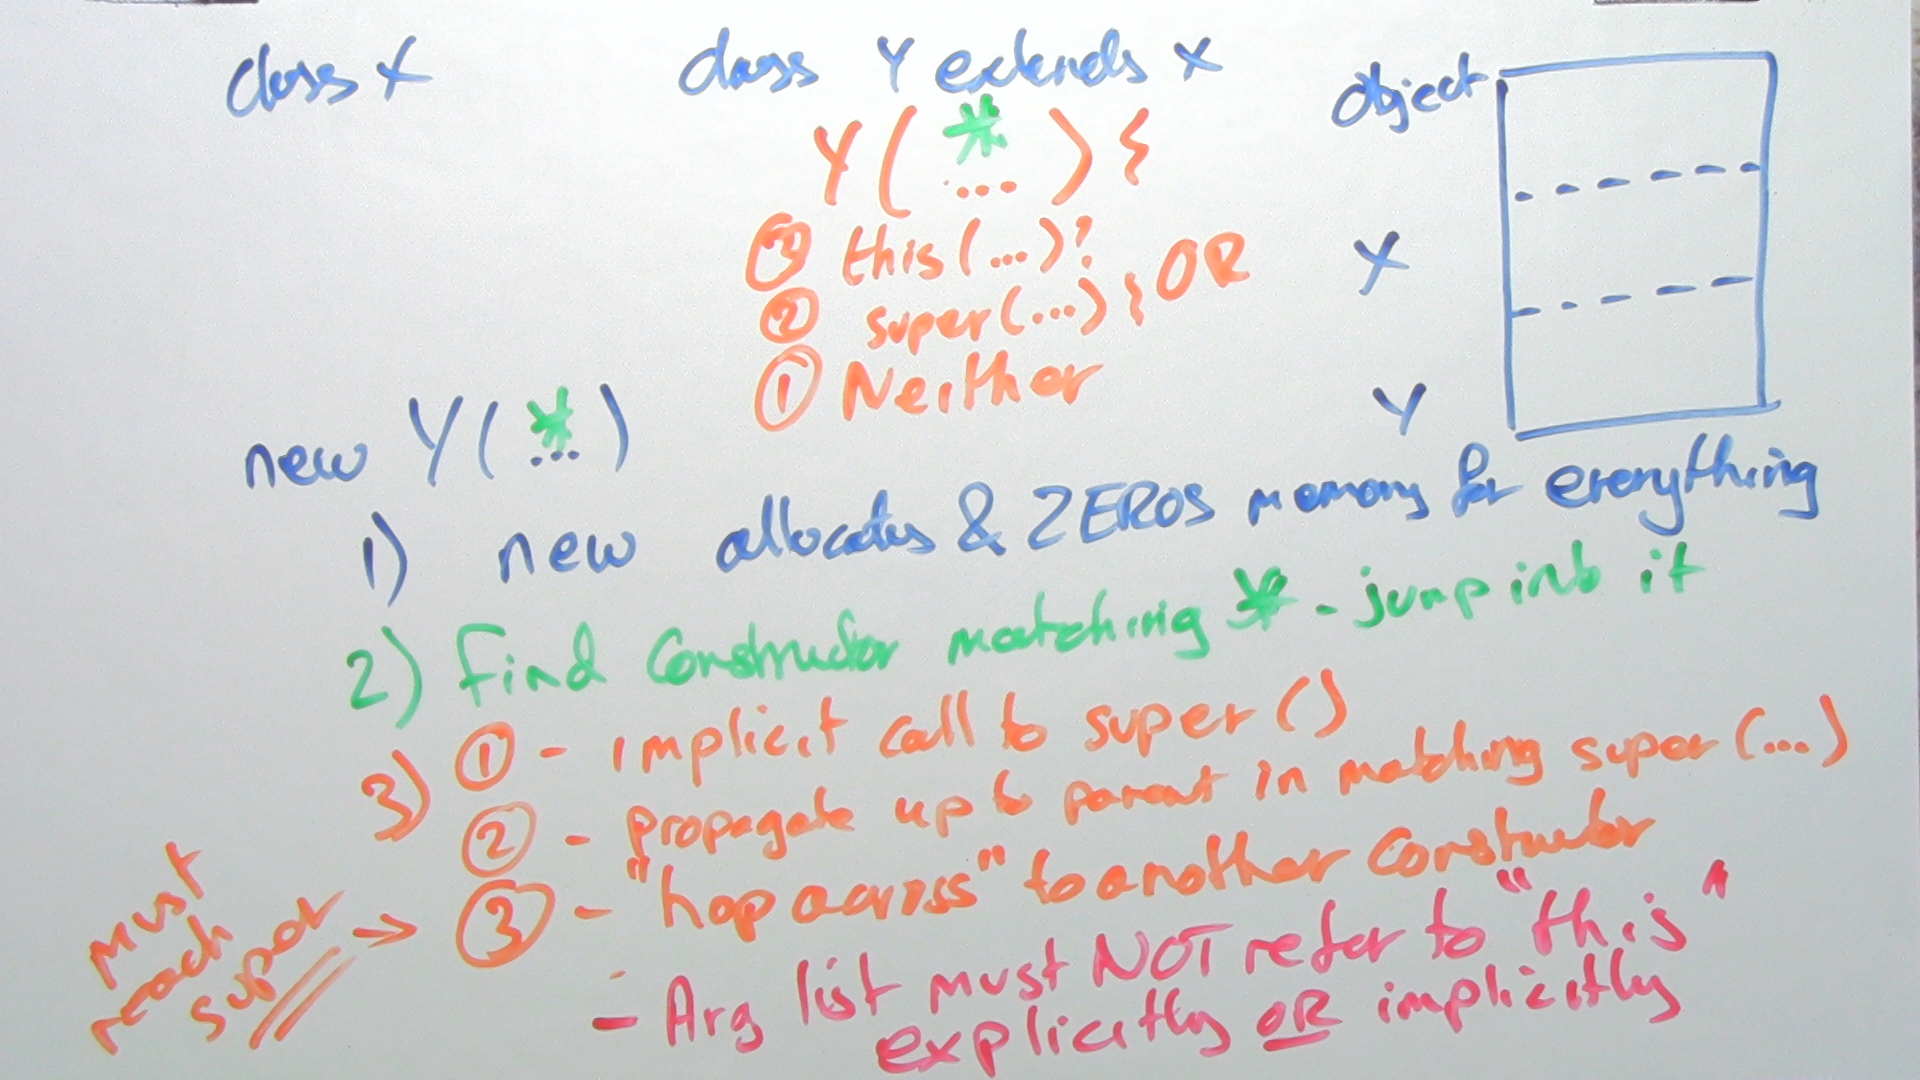 class X
class Y extends X
Y( * ... ) {
③ this(...)?
② super(...) } OR
① Neither
Object
X
Y
new Y( * ... )
1) new allocates & ZEROS memory for everything
2) Find Constructor matching * - jump into it
3) ① - implicit call to super()
② - propagate up to parent in matching super(...)
must reach super → ③ - "hop across" to another constructor
- Arg list must NOT refer to "this"
explicitly OR implicitly